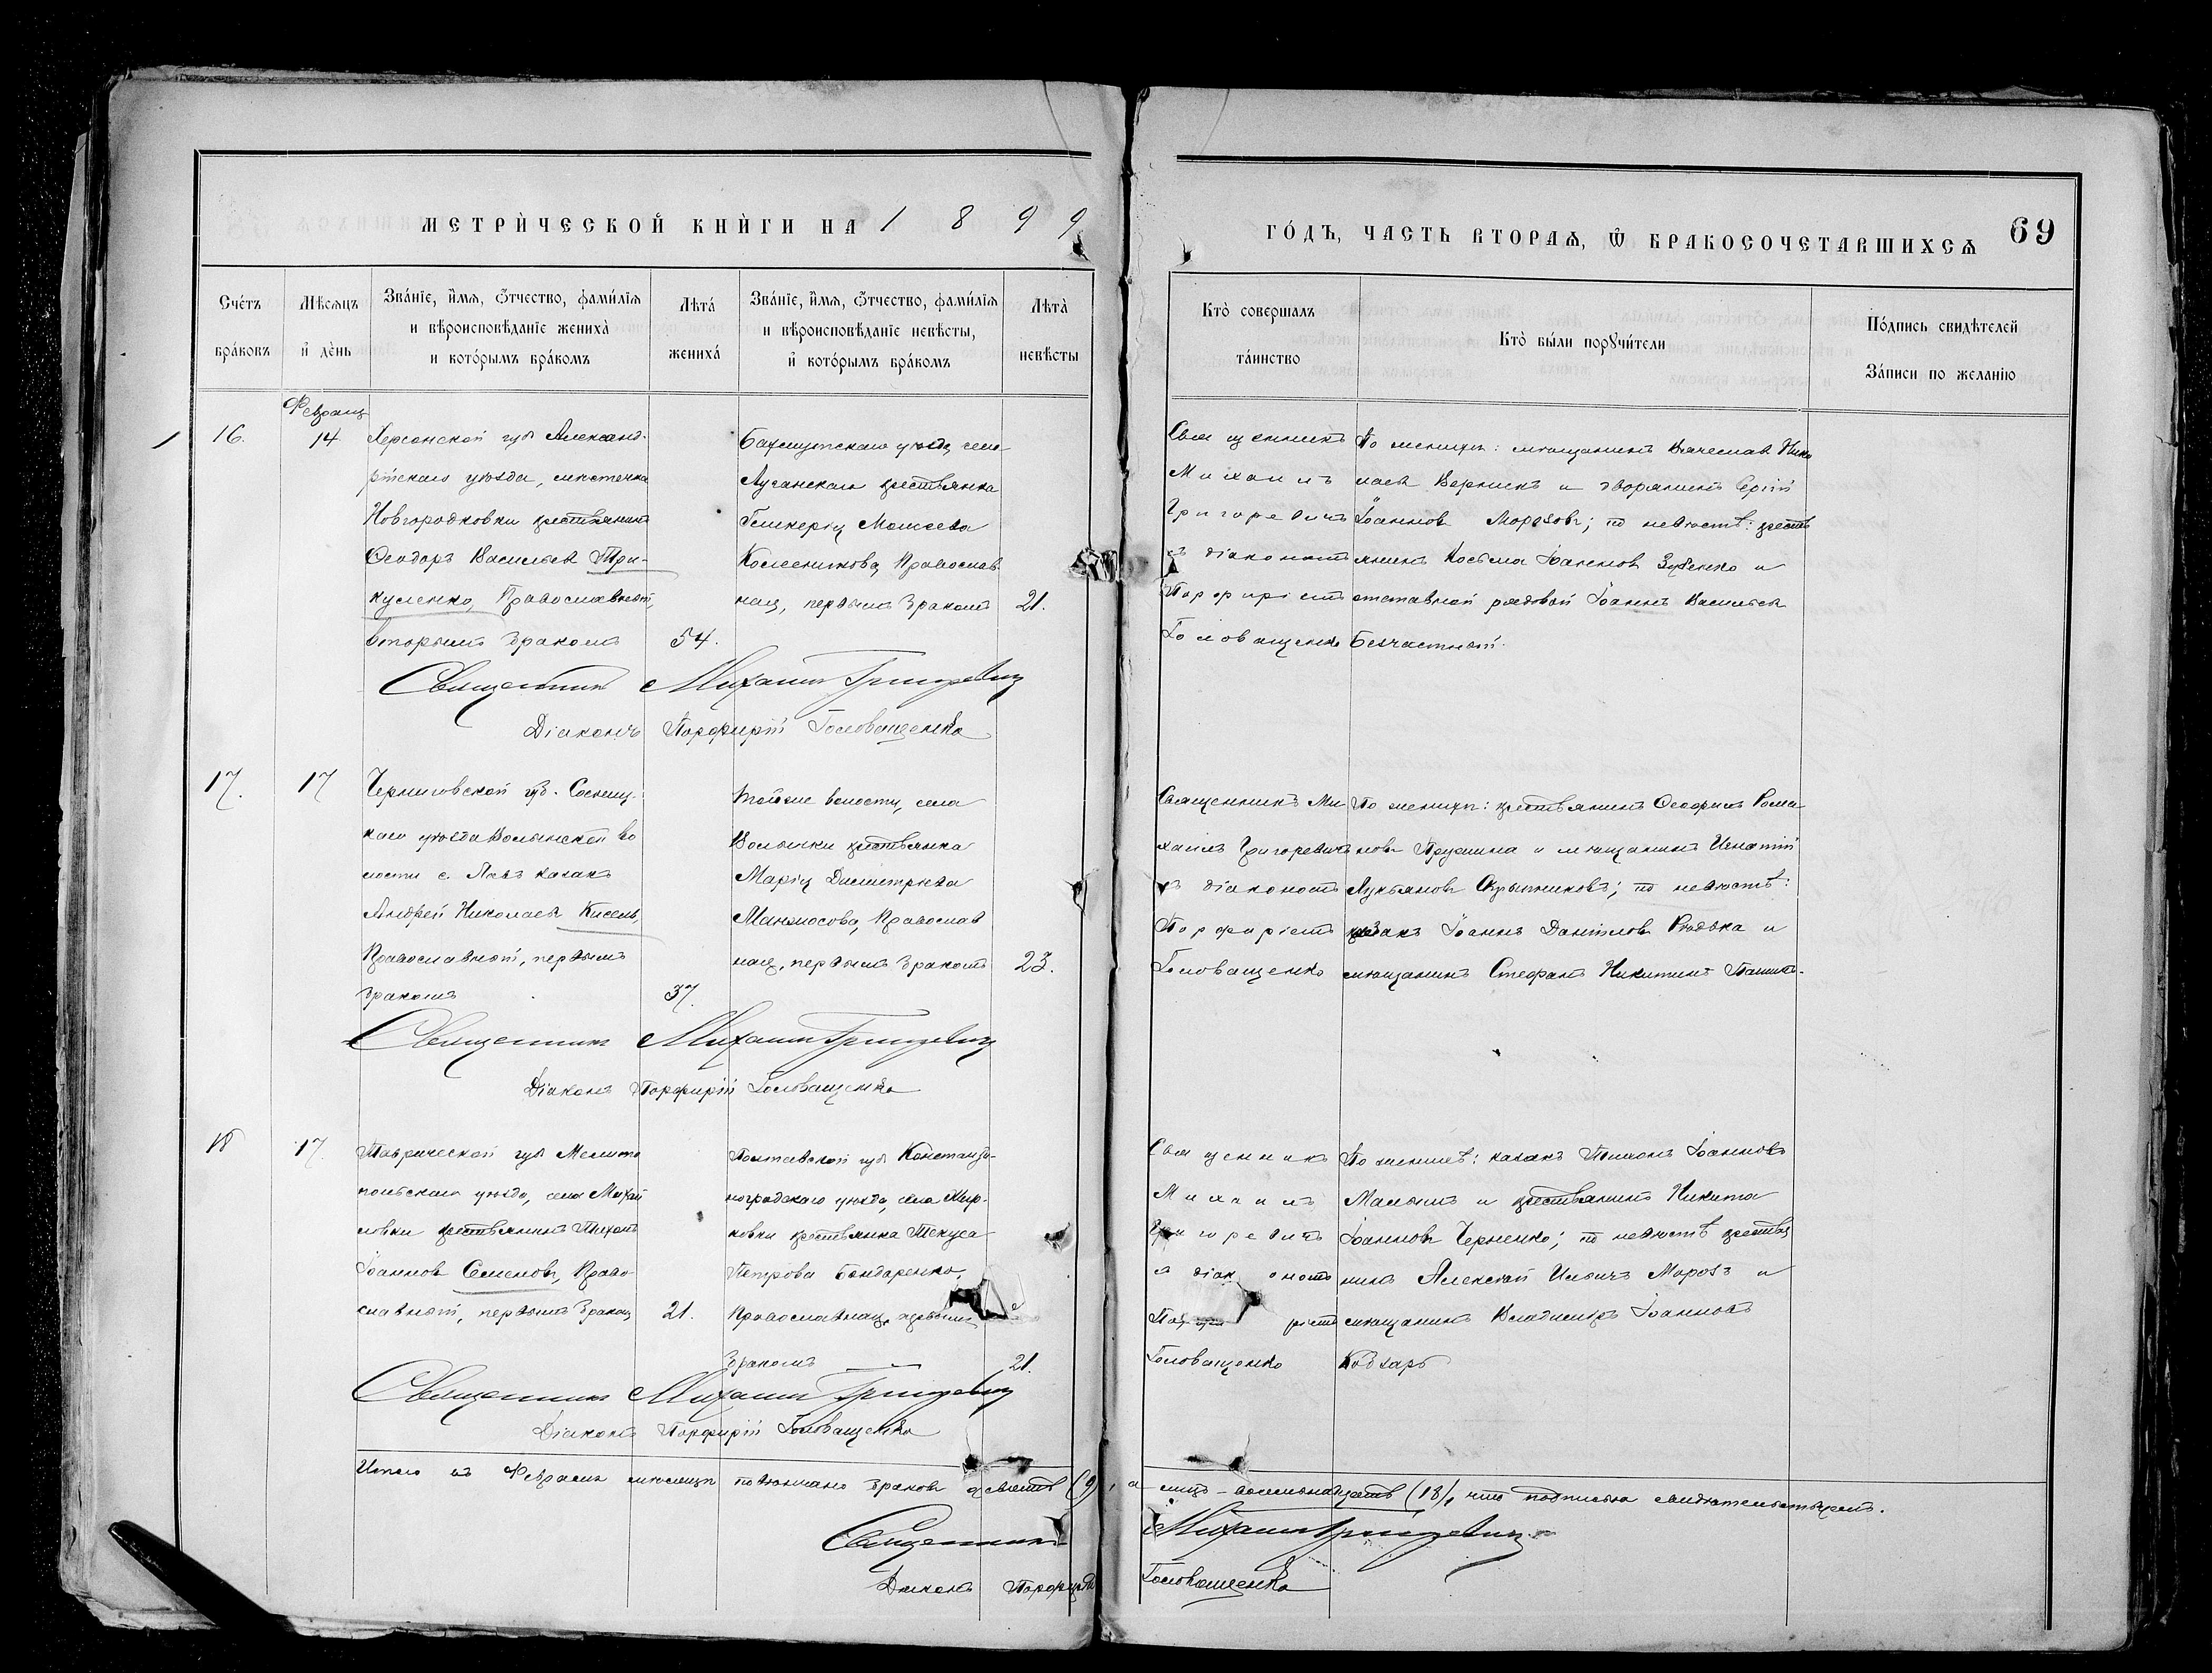 МЕТРИ́ЧЕСКОЙ КНИ́ГИ НА 1899
ГО́ДЪ, ЧАСТЬ ВТОРАѦ, Ѿ БРАКОСОЧЕТАВШИХСѦ 69
Сче́тъ бра́ковъ
Мѣсѧцъ и де́нь
Зва́нїе, и́мѧ, ѻ́тчество, фами́лїѧ
и вѣроисповѣ́данїе жениха̀
и кото́рымъ бра́комъ
Лѣта̀ жениха̀
Зва́нїе, и́мѧ, ѻ́тчество, фами́лїѧ
и вѣроисповѣ́данїе невѣ́сты,
и кото́рымъ бра́комъ
Лѣта̀ невѣ́сты
Кто̀ соверша́лъ
та́инство
Кто̀ бы́ли порꙋчи́тели
По́дпись свидѣ́телей
За́писи по жела́нію
Февраль
16. 14
Херсонской губ Александ-
рійскаго уѣзда, мѣстечка
Новгородковки крестьянинъ
Ѳеодоръ Васильевъ Три-
куленко, Православный,
вторымъ бракомъ 54.
Бахмутскаго уѣзда, села
Луганскаго крестьянка
Гликерія Моисеева
Колесникова, Православ-
ная, первымъ бракомъ 21.
Священникъ
Михаилъ
Григоревичъ
съ діакономъ
Порфиріемъ
Головащенко
По женихѣ: мѣщанинъ Вячеславъ Нико
лаевъ Верникъ и дворянинъ Сергій
Іоанновъ Морозовъ; по невѣстѣ: кресть
янинъ Косьма Іоанновъ Зубенко и
отставной рядовой Іоаннъ Васильевъ
Безчастный.
Священникъ Михаилъ Григоревичъ
Діаконъ Порфирій Головащенко
17. 17
Черниговской губ. Сосниц-
каго уѣзда Волынской во
лости с. Лавъ казакъ
Андрей Николаевъ Кисель,
Православный, первымъ
бракомъ 37.
Той же волости, села
Волынки крестьянка
Марія Димитріева
Манжосова, Православ
ная, первымъ бракомъ 23.
Священникъ Ми
хаилъ Григоревичъ
съ діакономъ
Порфиріемъ
Головащенко
По женихѣ: крестьянинъ Ѳеофилъ Рома
новъ Прушина и мѣщанинъ Игнатій
Лукьяновъ Скрынниковъ; по невѣстѣ:
казакъ Іоаннъ Даніиловъ Рѣдька и
мѣщанинъ Стефанъ Никитинъ
Священникъ Михаилъ Григоревичъ
Діаконъ Порфирій Головащенко
18 17.
Таврической губ Мелито
польскаго уѣзда, села Михай
ловки крестьянинъ Тихонъ
Іоанновъ Семеновъ, Право-
славный, первымъ бракомъ 21.
Полтавской губ Константи-
ноградскаго уѣзда, села
крестьянка Текуса
Петрова Бондаренко,
Православная, первымъ
бракомъ 21.
Священникъ
Михаилъ
Григоревичъ
съ діакономъ
Порфиріемъ
Головащенко
По женихѣ: казакъ Іоанновъ
Малышъ и крестьянинъ Никита
Іоанновъ Черненко; по невѣстѣ крестья
нинъ Алексѣй Ильичъ Морозъ и
мѣщанинъ Владиміръ Іоанновъ
Кобзарь
Священникъ Михаилъ Григоревичъ
Діаконъ Порфирій Головащенко
Итого въ Февралѣ мѣсяцѣ повѣнчано браковъ девять (9), а лицъ - восемнадцать (18), что подписью свидѣтельствуемъ.
Священникъ Михаилъ Григоревичъ
Діаконъ Порфирій Головащенко